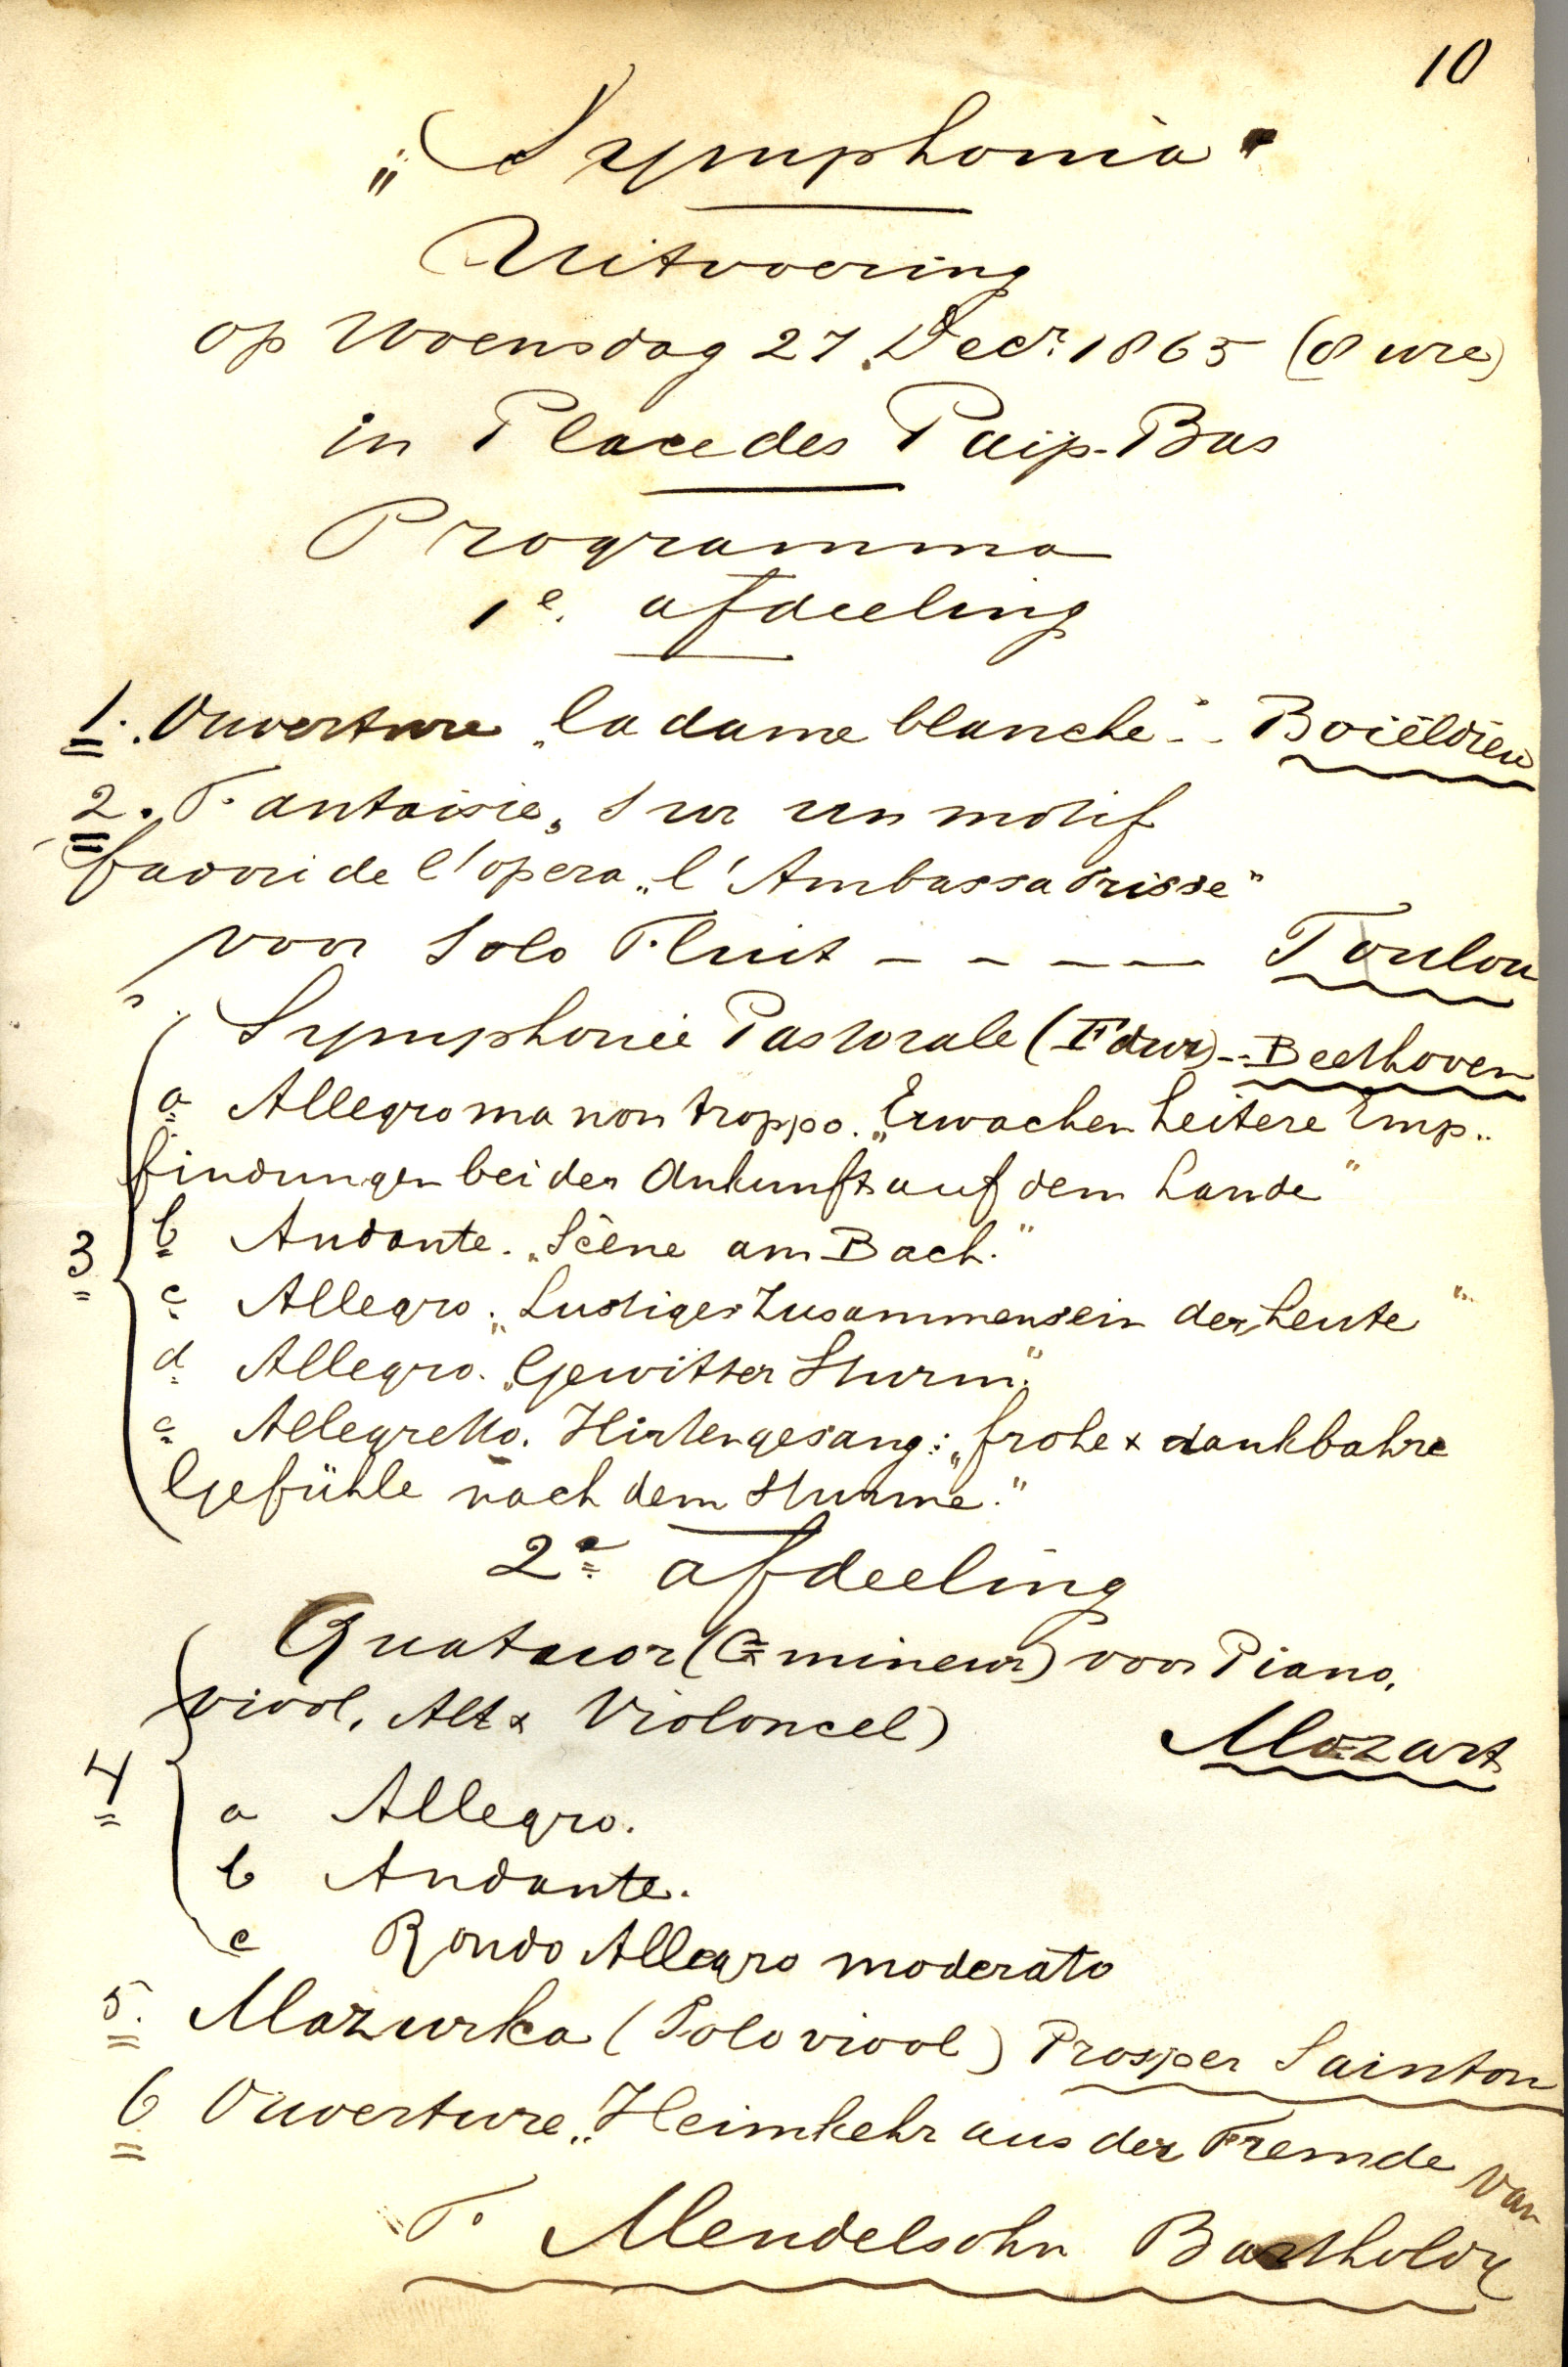 10
„Symphonia"
Uitvoering
op Woensdag 27 Decr. 1865 (8 ure)
in Place des Païs-Bas
Programma
1e. afdeeling
1. Ouverture „la dame blanche" - - Boiëldieu
2. Fantaisie „Sur un motif
favori de l'opera „l'Ambassadrisse"
voor Solo Fluit - - - - - Toulou
Symphonie Pastorale (F dur) - - Beethoven
a Allegro ma non troppo. „Erwachen heitere Emp..
findungen bei der Ankunft auf dem Lande"
3 b Andante. „Scène am Bach."
c Allegro. „Lustiges Zusammensein der Leute"
d Allegro. „Gewitter Sturm."
e Allegretto. Hirtengesang: „frohe & dankbahre
Gefühle nach dem Sturme."
2e afdeeling
Quatuor (G mineur) voor Piano,
viool, Alt & Violoncel)
Mozart
4
a Allegro.
b Andante.
c Rondo Allegro moderato
5. Mazurka (Solo viool) Prosper Sainton
6 Ouverture „Heimkehr aus der Fremde van
F. Mendelsohn Bartholdy